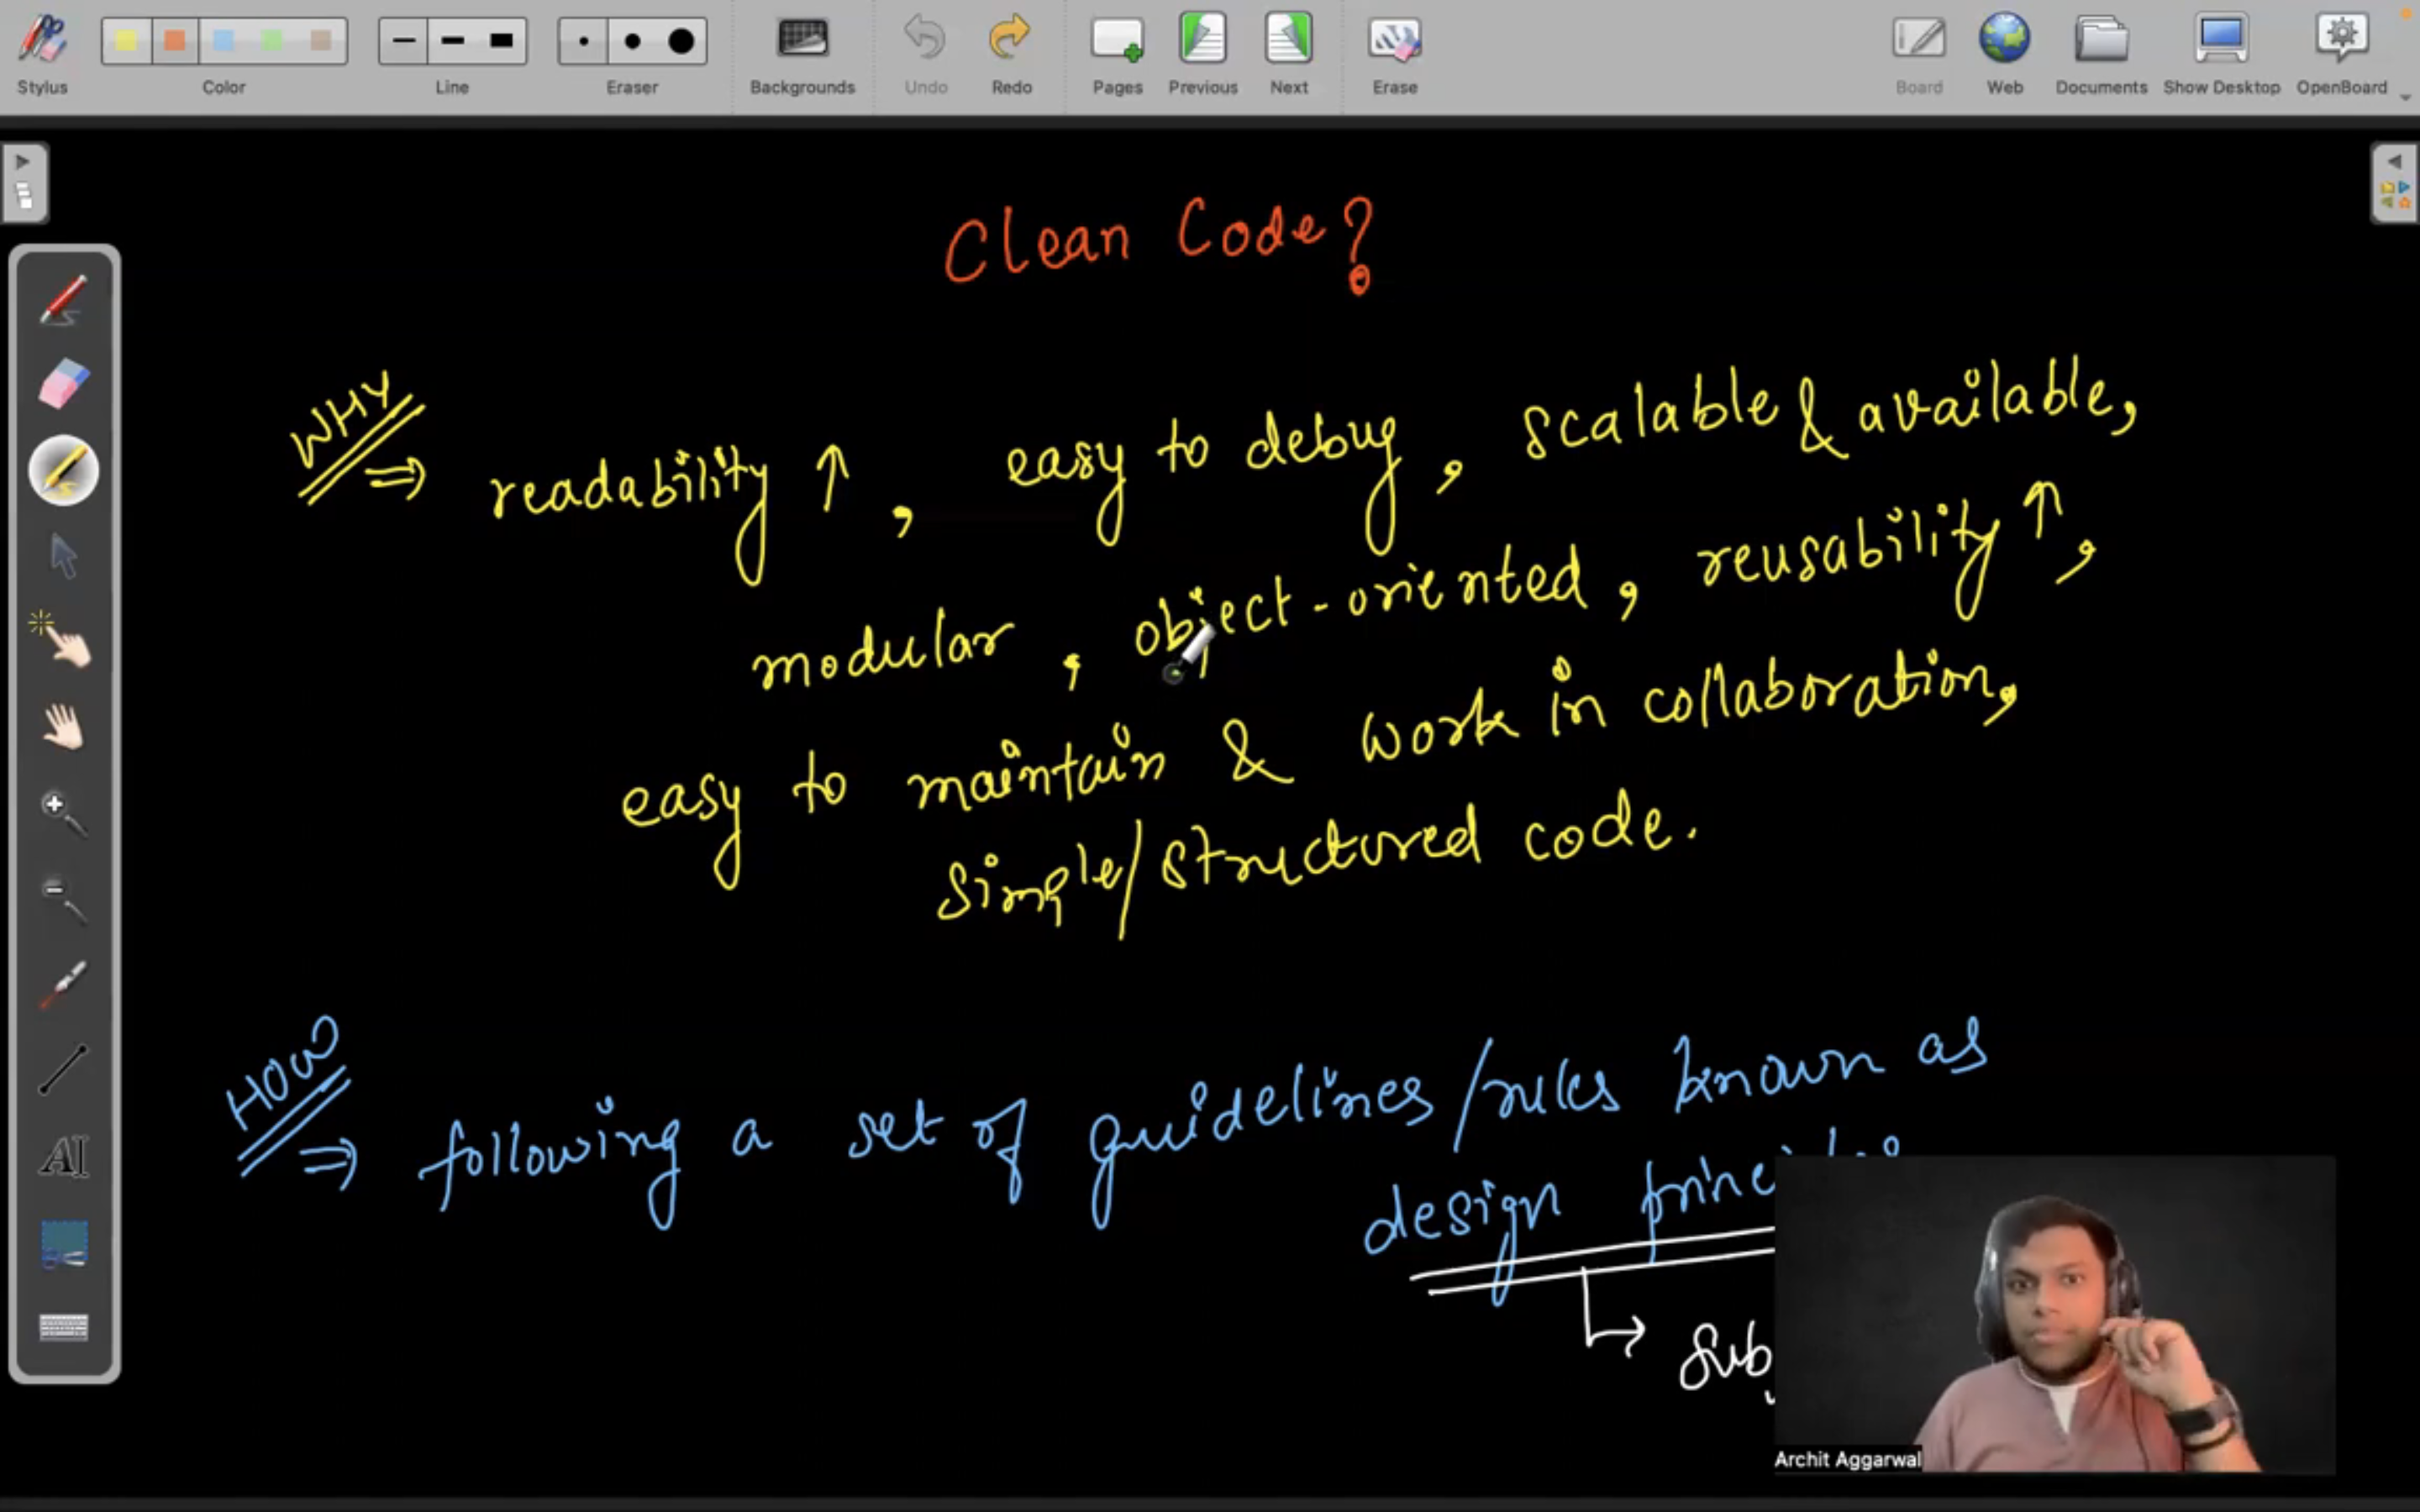 Stylus Color Line Eraser Backgrounds Undo Redo Pages Previous Next Erase Board Web Documents Show Desktop OpenBoard
Clean Code?
WHY
⇒ readability ↑, easy to debug, scalable & available,
modular, object-oriented, reusability ↑,
easy to maintain & work in collaboration,
simple/structured code.
HOW
⇒ following a set of guidelines/rules known as
design
↳ Sub
AI
Archit Aggarwal